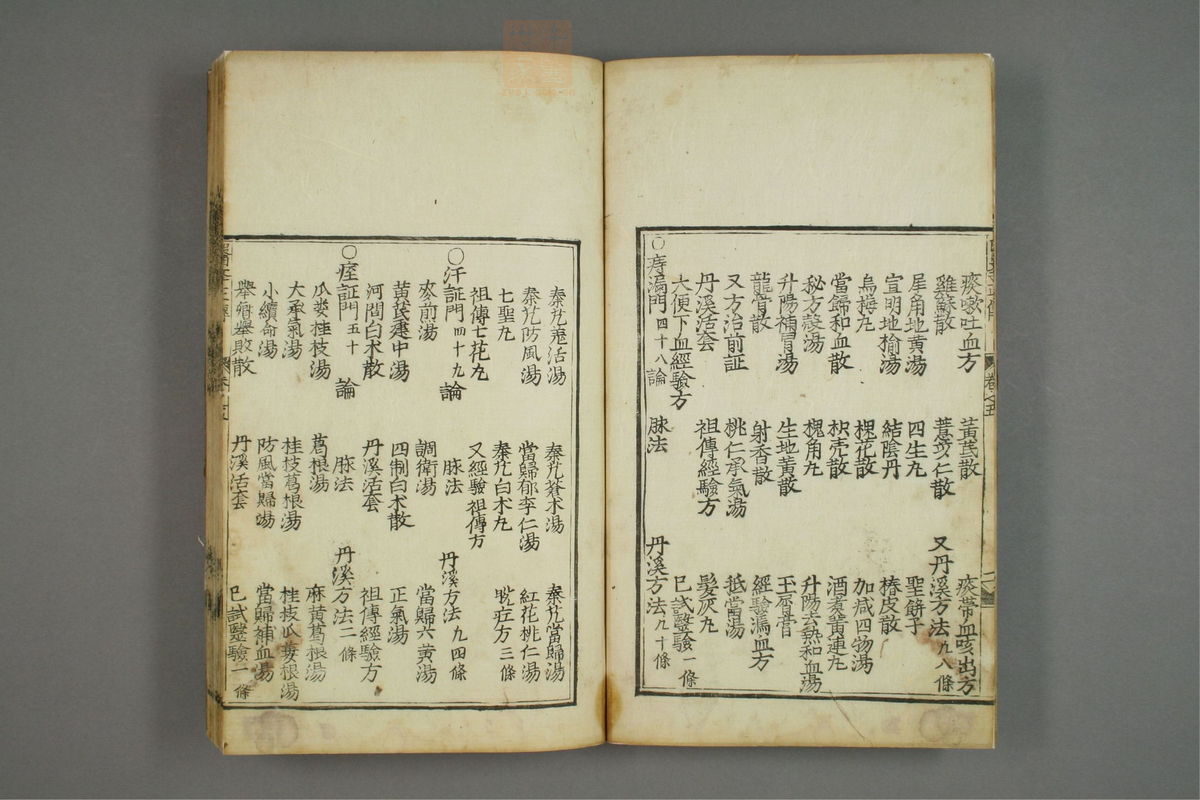 痰嗽吐血方 黃芪散 痰帶血咳出方
雞蘇散 薏苡仁散 又丹溪方法九八條
犀角地黃湯 四生丸 聖餅子
宣明地榆湯 結陰丹 椿皮散
烏梅丸 槐花散 加減四物湯
當歸和血散 枳壳散 酒煮黃連丸
秘方殼湯 槐角丸 升陽去熱和血湯
升陽補胃湯 生地黃散 玉屑膏
龍骨散 射香散 經驗漏血方
又方治前証 桃仁承氣湯 抵當湯
丹溪活套 祖傳經驗方 髮灰丸
大便下血經驗方 已試醫驗一條
○痔漏門四十八論 脉法 丹溪方法九十條
秦艽羗活湯 秦艽蒼术湯 秦艽當歸湯
秦艽防風湯 當歸郁李仁湯 紅花桃仁湯
七聖丸 秦艽白术丸 脫疘方三條
祖傳七花丸 又經驗祖傳方
○汗証門四十九論 脉法 丹溪方法九四條
麥前湯 調衛湯 當歸六黃湯
黃芪建中湯 四制白术散 正氣湯
河間白术散 丹溪活套 祖傳經驗方
○痓証門五十論 脉法 丹溪方法二條
瓜蔞桂枝湯 葛根湯 麻黃葛根湯
大承氣湯 桂枝葛根湯 桂枝瓜蔞根湯
小續命湯 防風當歸湯 當歸補血湯
舉敗散 丹溪活套 已試醫驗一條